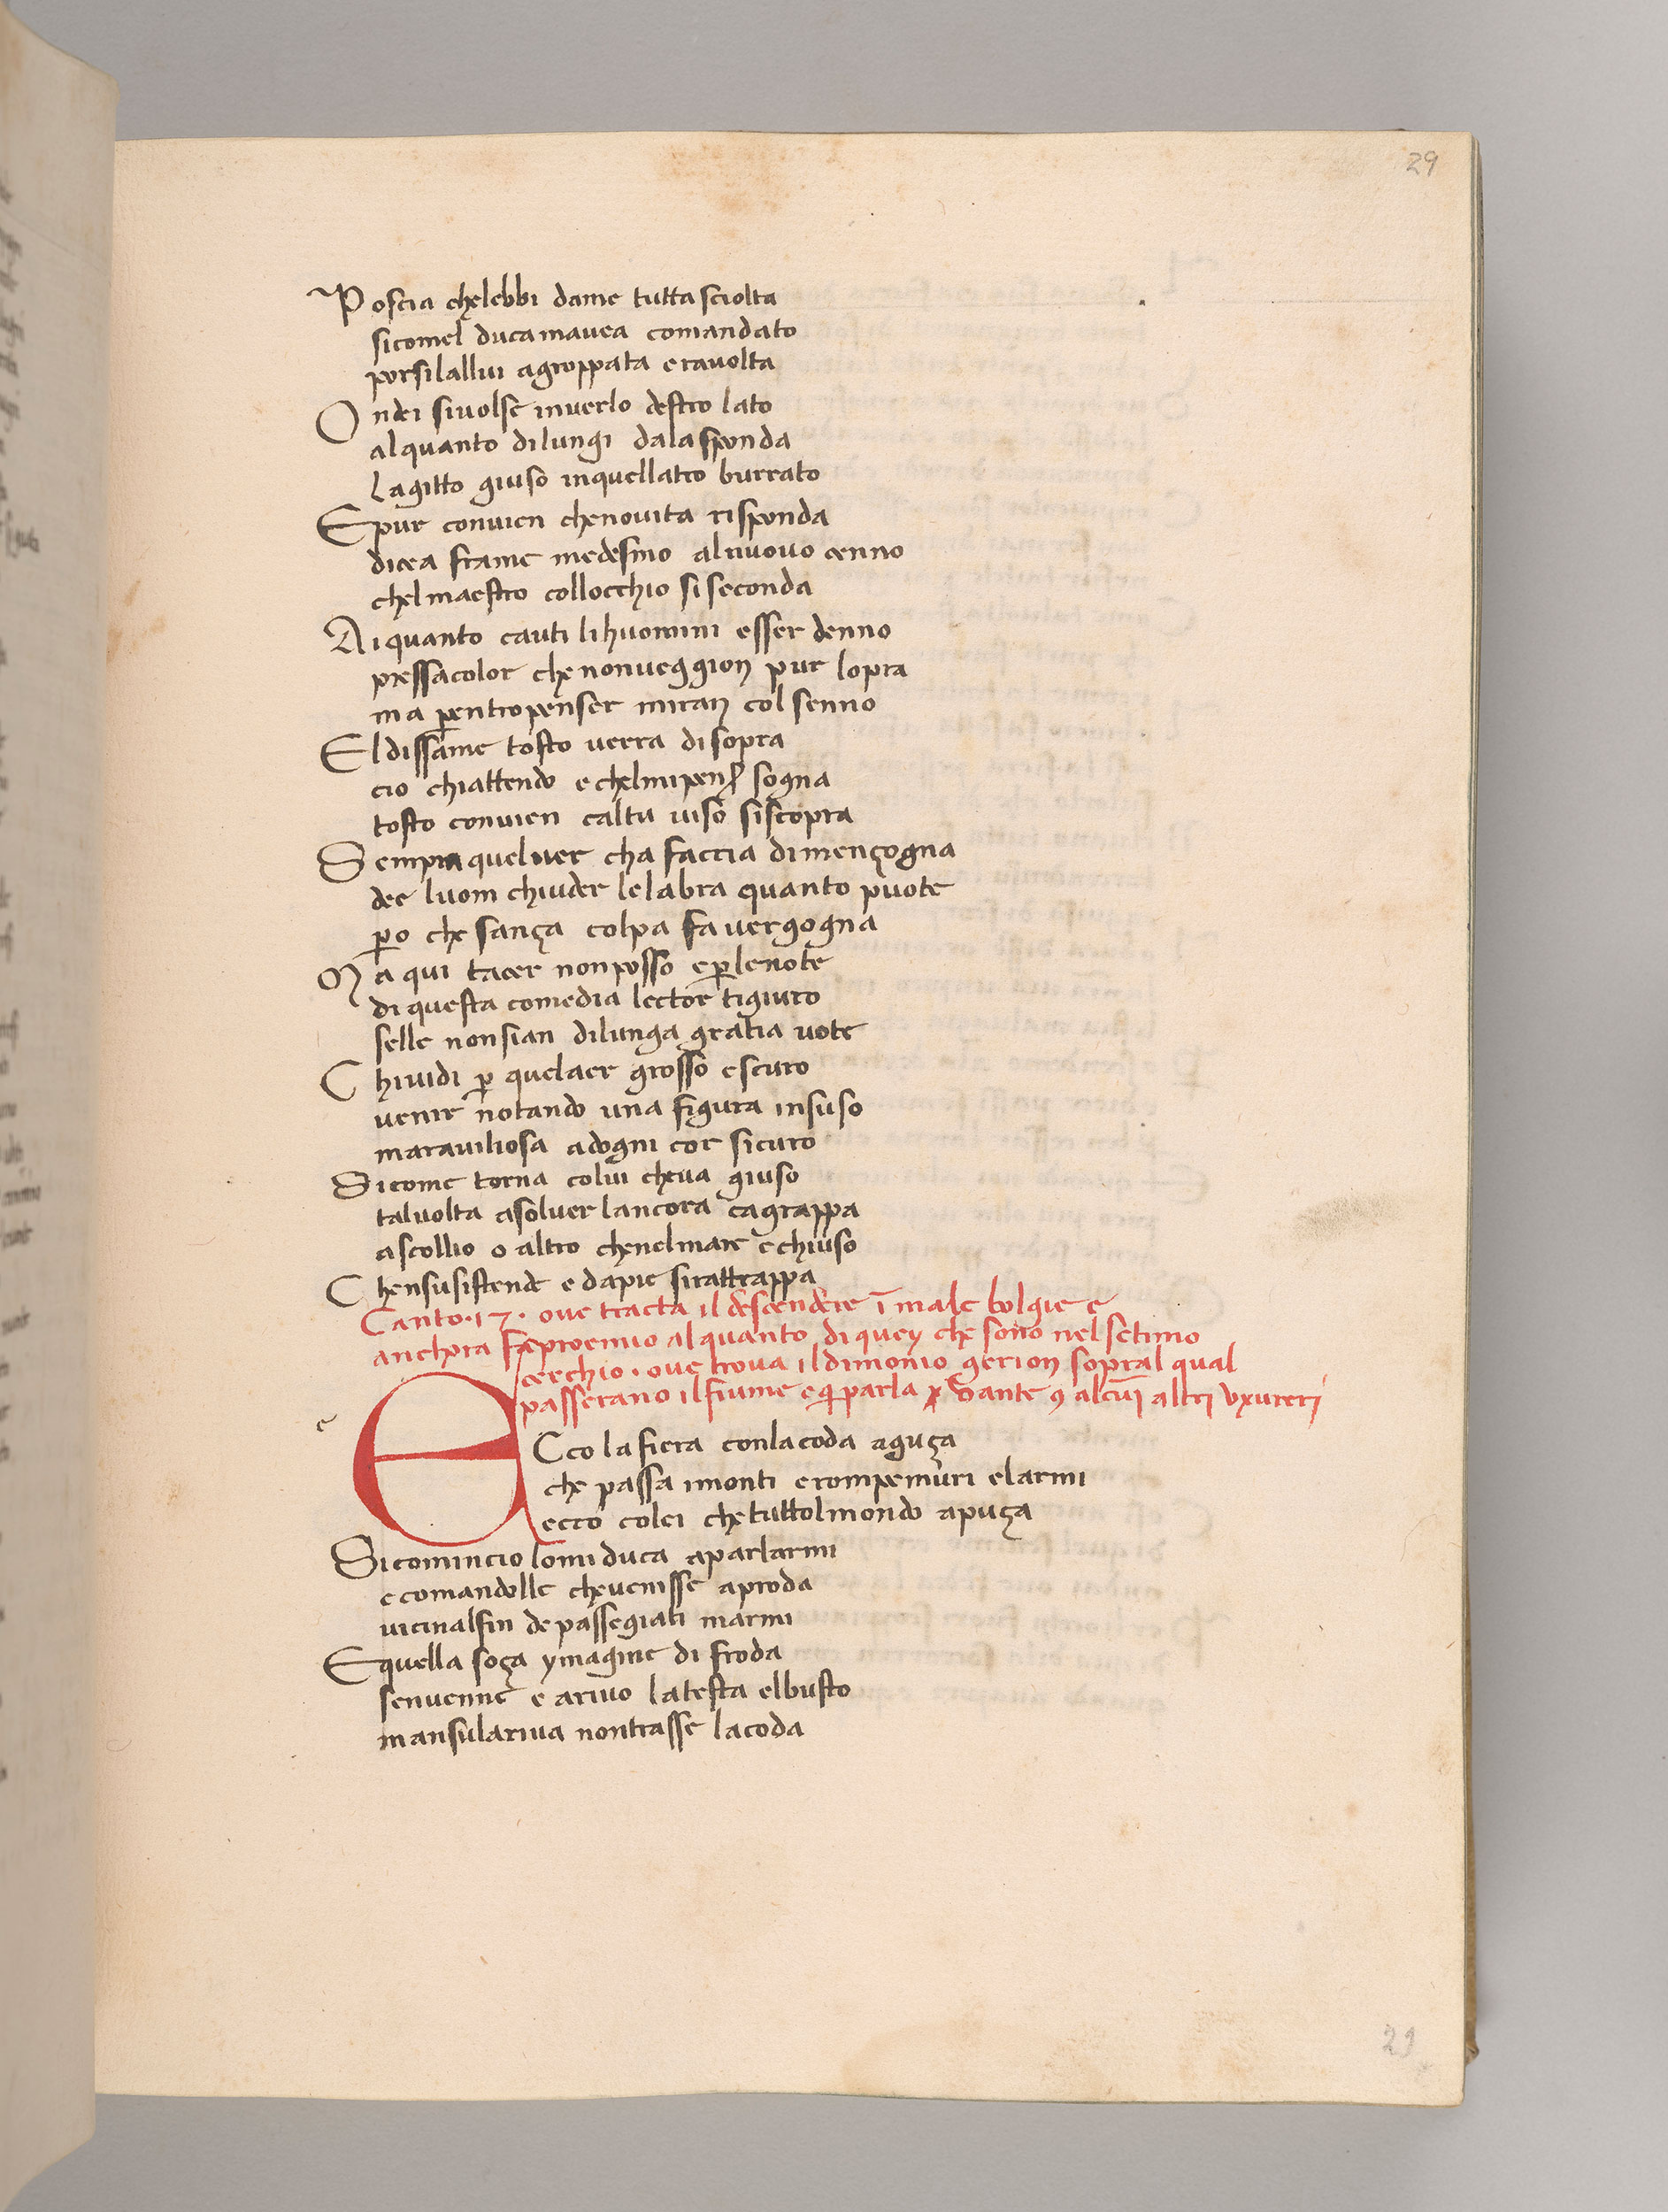 29
Poscia chelebbi dame tutta sciolta
sicomel ducamavea comandato
porsilallui agroppata eravolta
Ondei sivolse inverlo destro lato
alquanto dilungi dalasponda
lagitto giuso inquellatro burrato
Epur convien chenovita risponda
dicea frame medesmo alnuovo cenno
chelmaestro collocchio siseconda
Aiquanto cauti lihuomini esser denno
pressacolor chenonveggion pur lopra
ma pentropenser miran colsenno
Eldissame tosto verra disopra
cio chiattendo echelmipenser sogna
tosto convien caltu viso siscopra
Sempra quelver cha faccia dimençogna
dee luom chiuder lelabra quanto puote
po che sança colpa fa vergogna
Ma qui tacer nonposso eplenote
di questa comedia lector tigiuro
selle nonsian dilunga gratia vote
Chividi p quelaer grosso escuro
venir notando una figura insuso
maraviliosa adogni cor sicuro
Sicome torna colui cheva giuso
talvolta asolver lancora cagrappa
ascollio o altro chenelmare echiuso
Chensusistende edapie sirattrappa
Canto .17. ove tracta il descendere ī male bolgie e
anchora fa proemio alquanto di quey che sono nel setimo
cerchio . ove trova il dimonio gerion sopral qual
passerano ilfiume e q parla Dante 9 alcūi altri Uxureri
e
ECco la fiera conlacoda aguça
che passa imonti erompemuri elarmi
ecco colei chetuttolmondo apuça
Sicomincio lomi duca aparlarmi
ecomandolle chevenisse aproda
vicinalfin depassegiati marmi
Equella soça ymagine di froda
senvenne e arivo latesta elbusto
mansulariva nontrasse lacoda
29